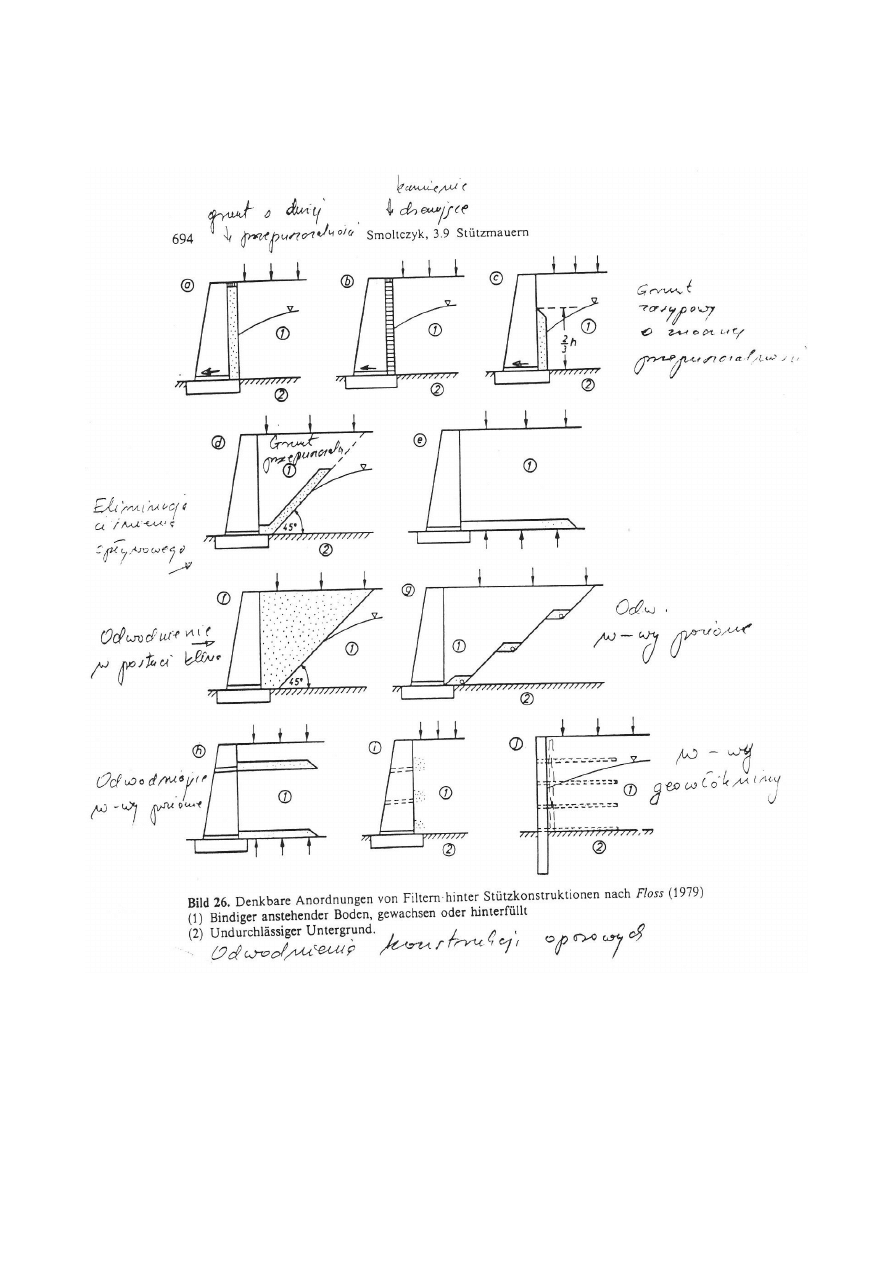 kamienie
grunt o dużej
↓ drenujące
↓ przepuszczalności
694 Smoltczyk, 3.9 Stützmauern
a
b
c
1
1
1
2/3 h
2
2
2
Grunt
zasypowy
o znacznej
przepuszczalności
d
Grunt
przepuszczalny
1
45°
2
e
1
Eliminacja
ciśnienia
spływowego
f
1
45°
g
1
2
Odwodnienie
w postaci klina
Odw.
w-wy poziome
h
1
i
1
2
j
1
2
Odwodniające
w-wy poziome
w-wy
geowłókniny
Bild 26. Denkbare Anordnungen von Filtern hinter Stützkonstruktionen nach Floss (1979)
(1) Bindiger anstehender Boden, gewachsen oder hinterfüllt
(2) Undurchlässiger Untergrund.
Odwodnienie konstrukcji oporowych